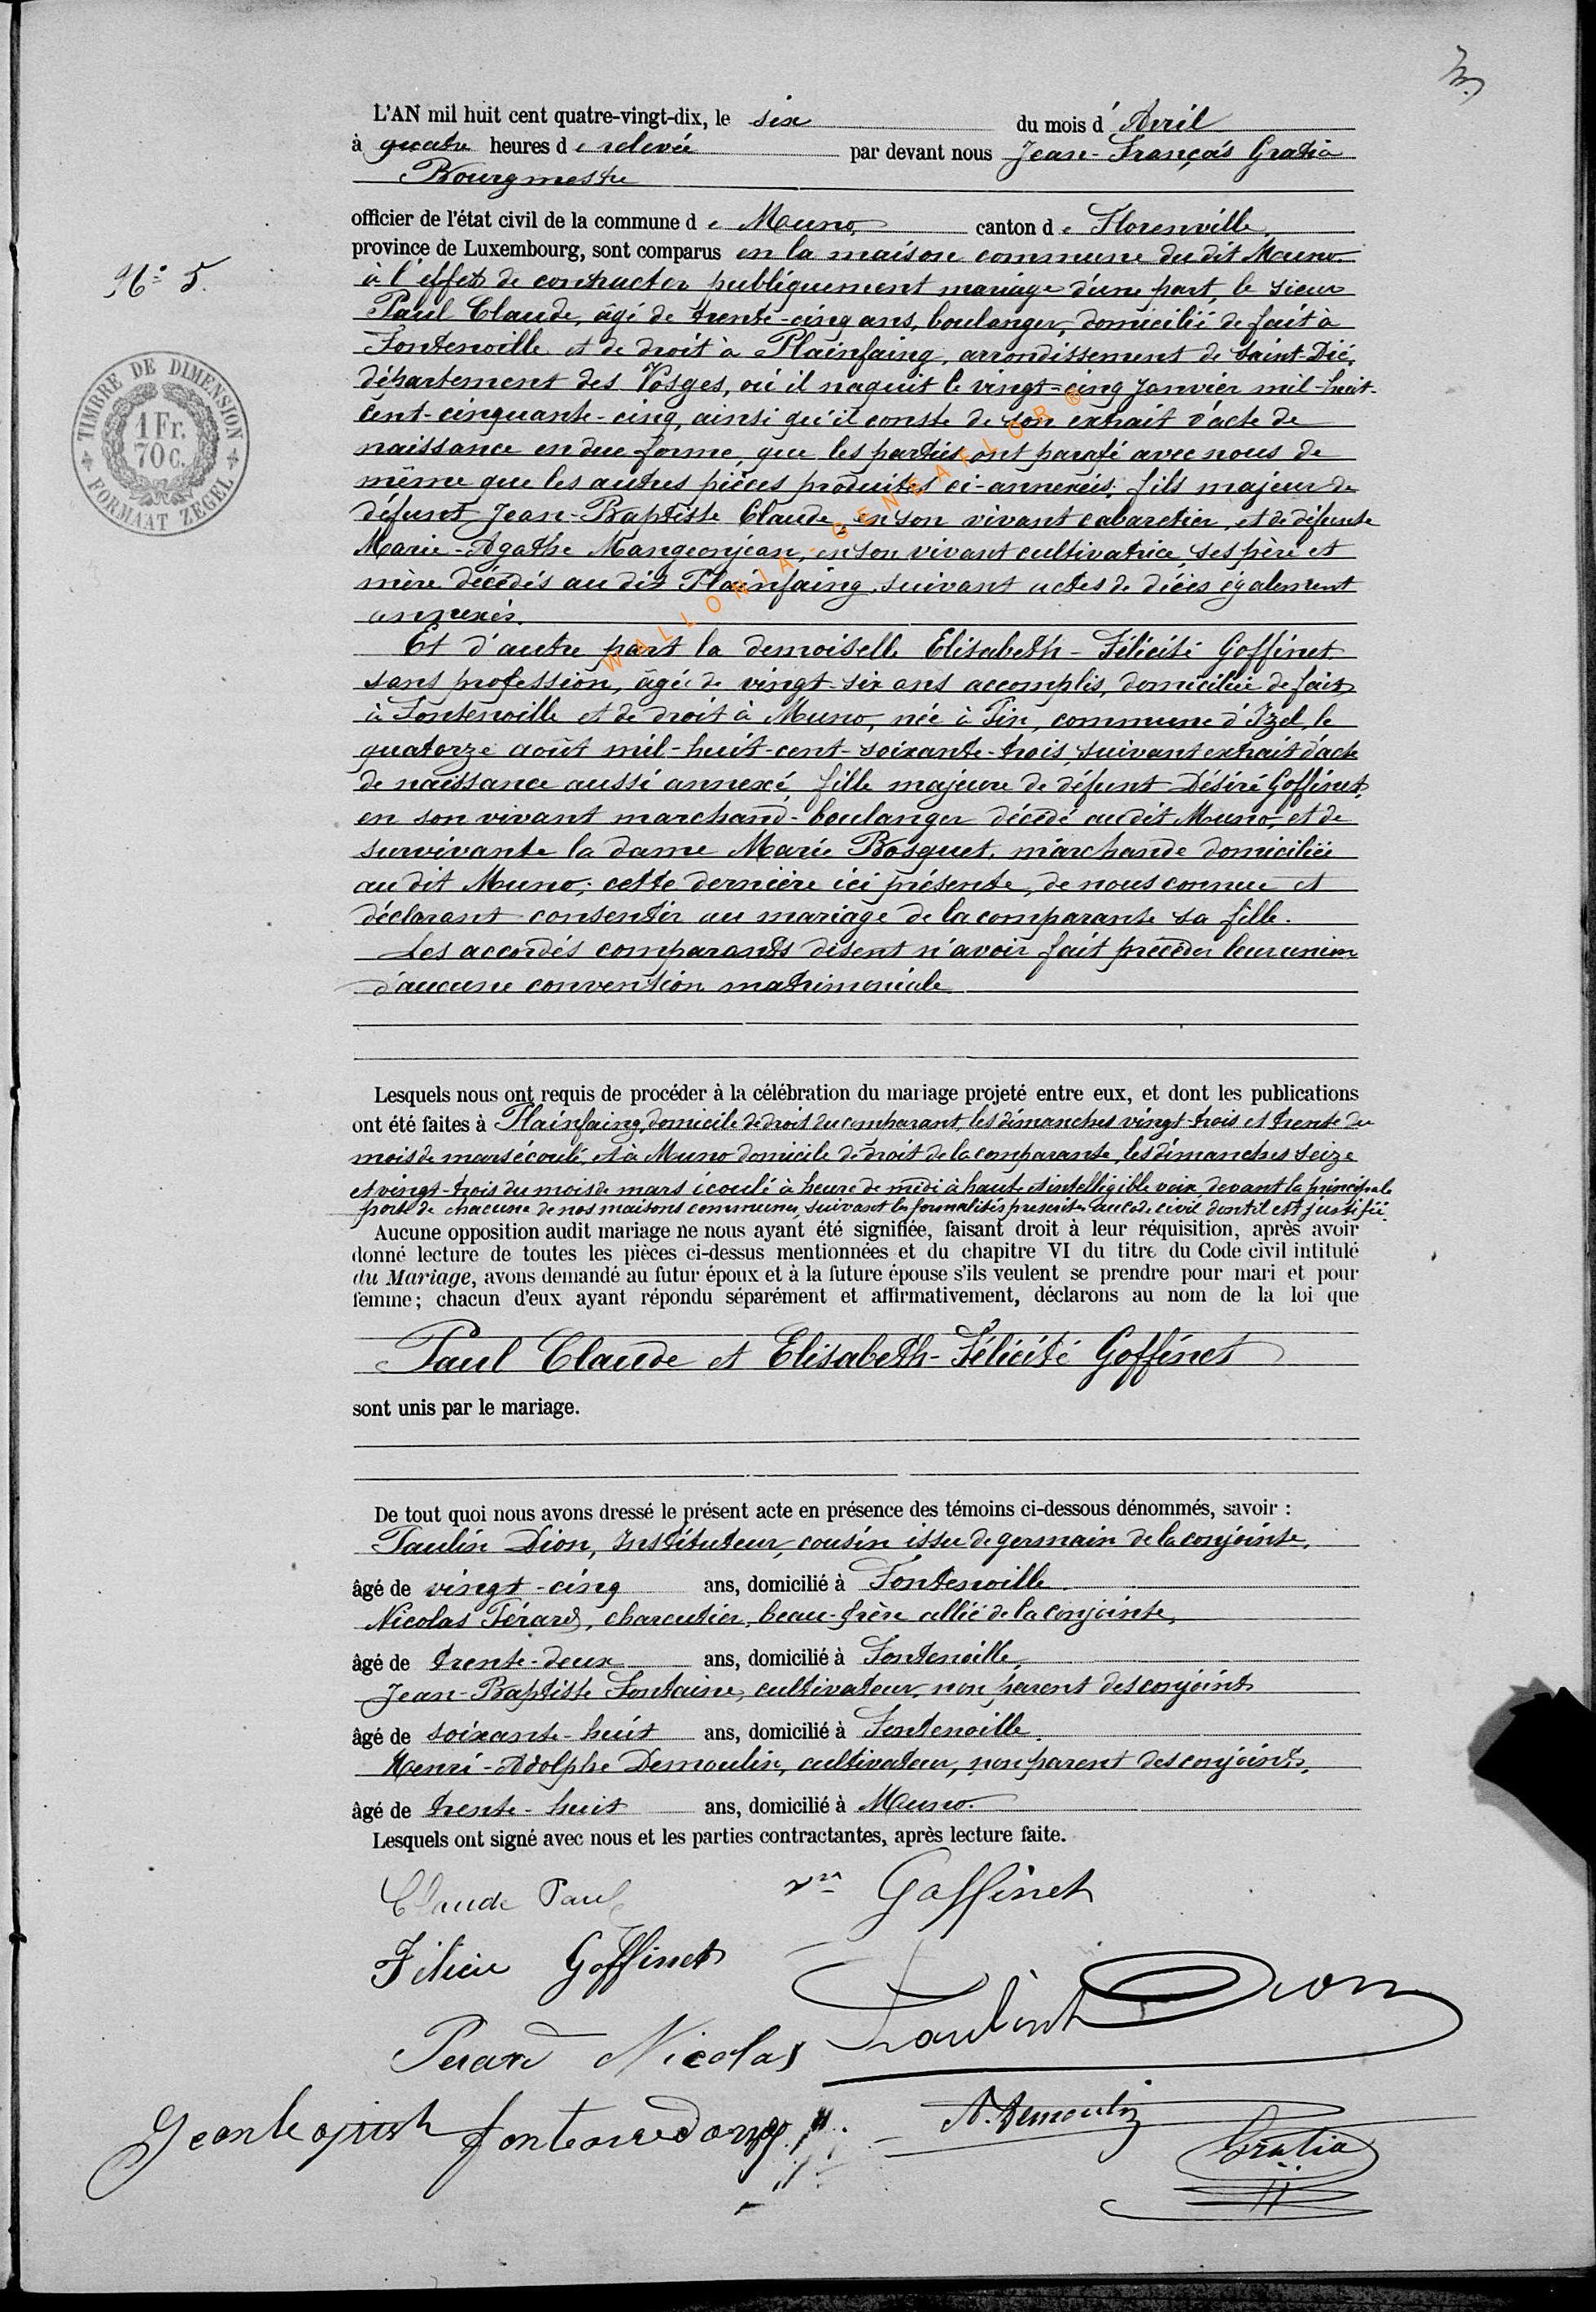 L'AN mil huit cent quatre-vingt-dix, le six du mois d'Avril
à quatre heures de relevée par devant nous Jean-François Gratia
Bourgmestre
officier de l'état civil de la commune de Muno, canton de Florenville,
province de Luxembourg, sont comparus en la maison commune du dit Muno
à l'effet de contracter publiquement mariage d'une part, le sieur
Paul Claude, âgé de trente-cinq ans, boulanger, domicilié de fait à
Fontenoille et de droit à Plainfaing, arrondissement de Saint-Dié,
département des Vosges, où il naquit le vingt-cinq Janvier mil-huit-
cent-cinquante-cinq, ainsi qu'il conste de son extrait d'acte de
naissance en due forme, que les parties ont parafé avec nous de
même que les autres pièces produites ci-annexées, fils majeur de
défunt Jean-Baptiste Claude, en son vivant cabaretier, et de défunte
Marie-Agathe Mangeonjean, en son vivant cultivatrice, ses père et
mère décédés au dit Plainfaing, suivant actes de décès également
annexés.
Et d'autre part la demoiselle Elisabeth-Félicité Goffinet
sans profession, âgée de vingt-six ans accomplis, domiciliée de fait
à Fontenoille et de droit à Muno, née à Pin, commune d'Izel, le
quatorze août mil-huit-cent-soixante-trois, suivant extrait d'acte
de naissance aussi annexé, fille majeure de défunt Désiré Goffinet,
en son vivant marchand-boulanger décédé audit Muno, et de
survivante la dame Marie Bosquet, marchande domiciliée
au dit Muno; cette dernière ici présente, de nous connue et
déclarant consentir au mariage de la comparante sa fille.
Les accordés comparants disent n'avoir fait précéder leur union
d'aucune convention matrimoniale
Lesquels nous ont requis de procéder à la célébration du mariage projeté entre eux, et dont les publications
ont été faites à Plainfaing, domicile de droit du comparant, les dimanches vingt-trois et trente du
mois de mars écoulé, et à Muno domicile de droit de la comparante, les dimanches seize
et vingt-trois du mois de mars écoulé à heure de midi à haute et intelligible voix, devant la principale
porte de chacune de nos maisons communes, suivant les formalités prescrites au code civil dont il est justifié.
Aucune opposition audit mariage ne nous ayant été signifiée, faisant droit à leur réquisition, après avoir
donné lecture de toutes les pièces ci-dessus mentionnées et du chapitre VI du titre du Code civil intitulé
du Mariage, avons demandé au futur époux et à la future épouse s'ils veulent se prendre pour mari et pour
femme; chacun d'eux ayant répondu séparément et affirmativement, déclarons au nom de la loi que
Paul Claude et Elisabeth-Félicité Goffinet
sont unis par le mariage.
De tout quoi nous avons dressé le présent acte en présence des témoins ci-dessous dénommés, savoir :
Paulin Dion, Instituteur, cousin issu de germain de la conjointe,
âgé de vingt-cinq ans, domicilié à Fontenoille.
Nicolas Pérard, charcutier, beau-frère allié de la conjointe,
âgé de trente-deux ans, domicilié à Fontenoille,
Jean-Baptiste Fontaine, cultivateur, non parent des conjoints
âgé de soixante-huit ans, domicilié à Fontenoille.
Henri-Adolphe Demoulin, cultivateur, non parent des conjoints,
âgé de trente-huit ans, domicilié à Muno.
Lesquels ont signé avec nous et les parties contractantes, après lecture faite.
Claude Paul
vve Goffinet
Félicie Goffinet
Paulin Dion
Perard Nicolas
A. Demoulin
Gratia
No 5.
TIMBRE DE DIMENSION
1 Fr.
70 C.
FORMAAT ZEGEL
WALLONIA - GENEAFLOR ®